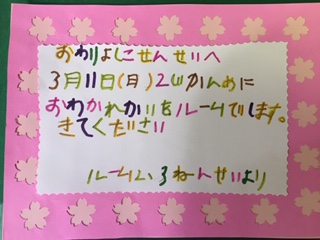 おわりよしこせんせいへ
3月11日(月)2じかんめに
おわかれかいをルームでします。
きてください
ルーム2、3ねんせいより